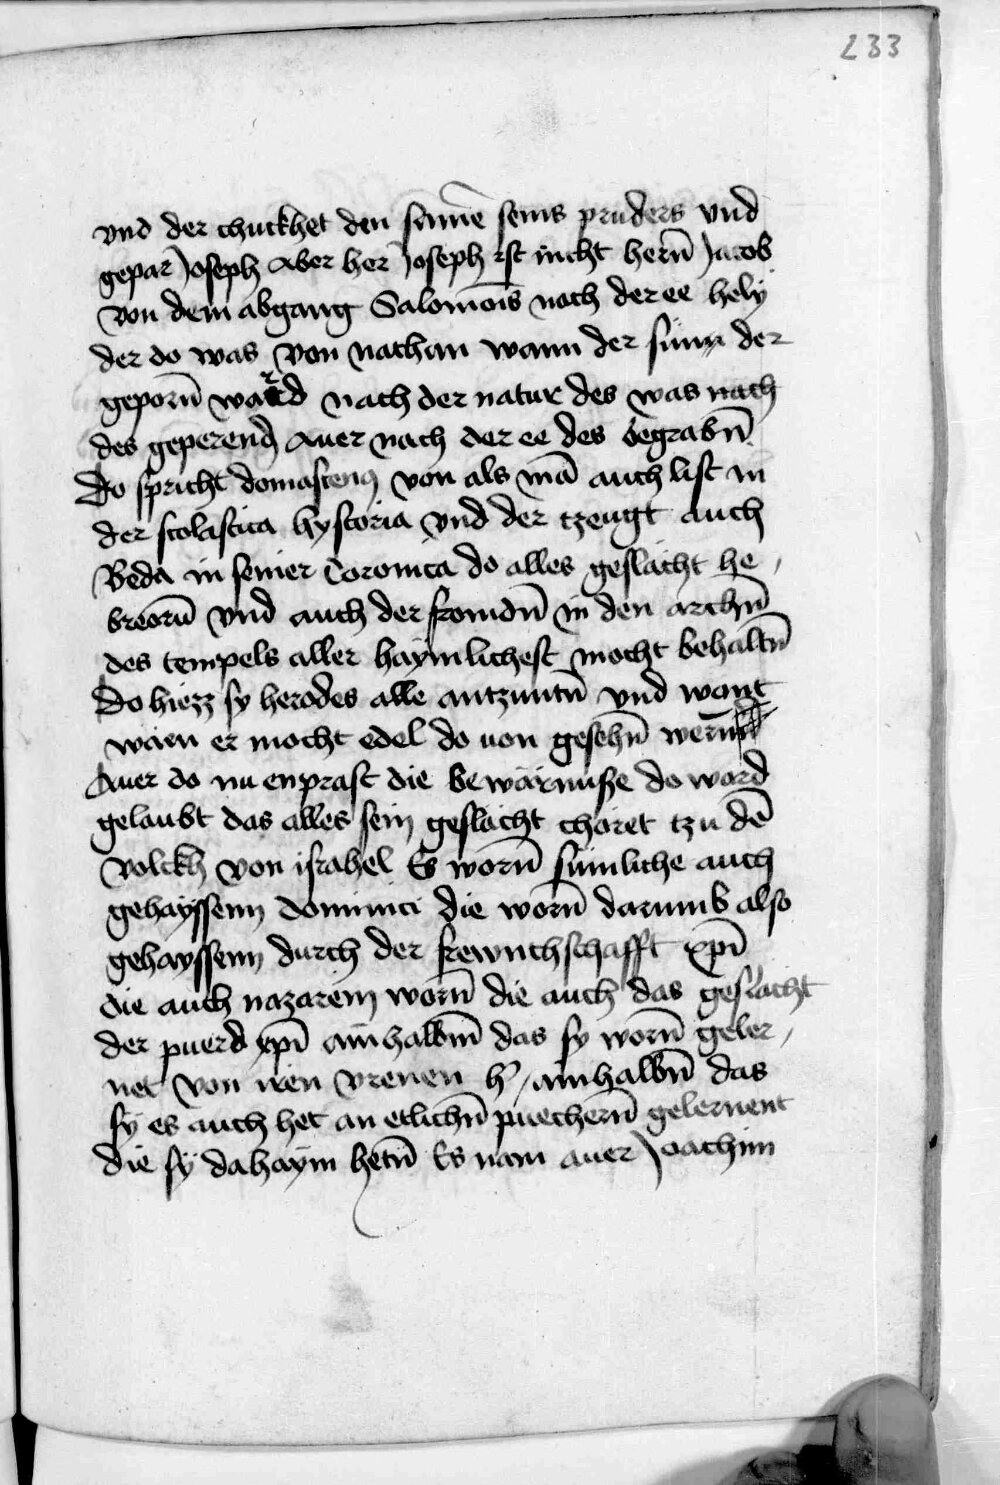 233
vnd der chuckhet den sunne seins pruders vnd
gepar Joseph Aber her Joseph ist nicht hern̄ Jacob
von dem abgang Salomois noch der ee hely
der do was von nathan wann der sunn der
geporn̄ ward nach der natur des was nach
des geperend aver nach der ee des begrabn̄
Do spricht domascenus von als mā auch list in
der scolastica hystoria vnd der tzeugt auch
Beda in seiner Coronica do alles geslacht he
breorū vnd auch der fromdn̄ in den archn̄
des tempels aller haymlichest mocht behaltn̄
Do hiezz sy herodes alle antzuntn̄ vnd want
wan er mocht edel do von gesehn̄ wern̄
Aver do nu enprast die bewarnusse do ward
gelaubt das alles sein geslacht choret tzu dē
volckh von israhel Es worn̄ sumliche auch
gehayssenn dominici die worn̄ darumb also
gehayssenn durch der frewnthschafft xp̄i
die auch nazarein worn̄ die auch das geslacht
der puerd xp̄i ainhalbm̄ das sy worn̄ geler
net von iren vrenen h ainhalbn̄ das
sy es auch het an etlichn̄ puechern̄ gelernent
die sy dahaym hetn̄ Es nam aver Joachim